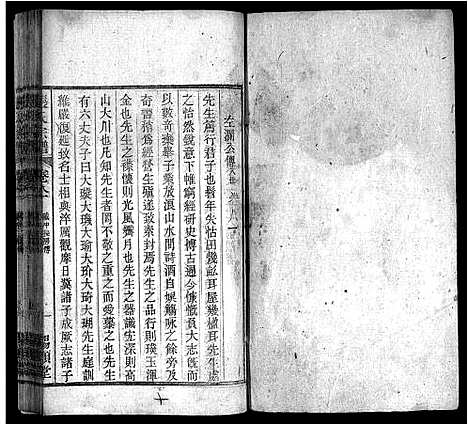 左瀾公傳
先生篤行君子也髫年失怙田幾畝耳屋幾楹耳先生
之怡然銳意下帷窮經研史博古通今慷慨負大志旣而
以數奇棄舉子業放浪山水間詩酒自娛觴詠之餘旁及
奇書稽爲經營生殖遂致素封焉先生之品行則璞玉渾
金也先生之風度則光風霽月也先生之器識宏深則高
山大川也凡知先生者罔不敬之重之而愛慕之也先生
有六丈夫子曰大璇大璣大瑜大玠大琦大瑚先生庭訓
維嚴延致名士相與淬厲觀摩日冀諸子成風志諸子
氏宗譜
卷
堂
十